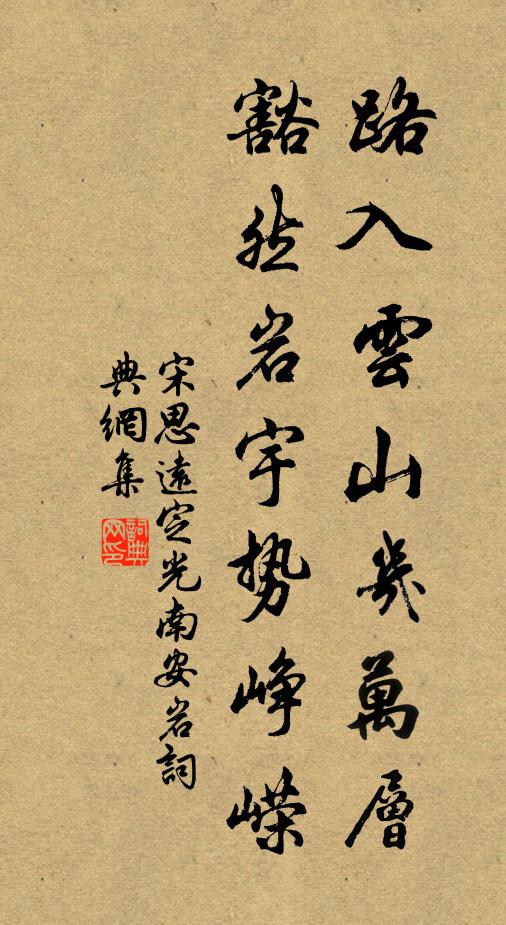 路入雲山幾萬層
豁然岩宇势峥嶸
宋思遠定光南安岩詞
典網集
詞典网印